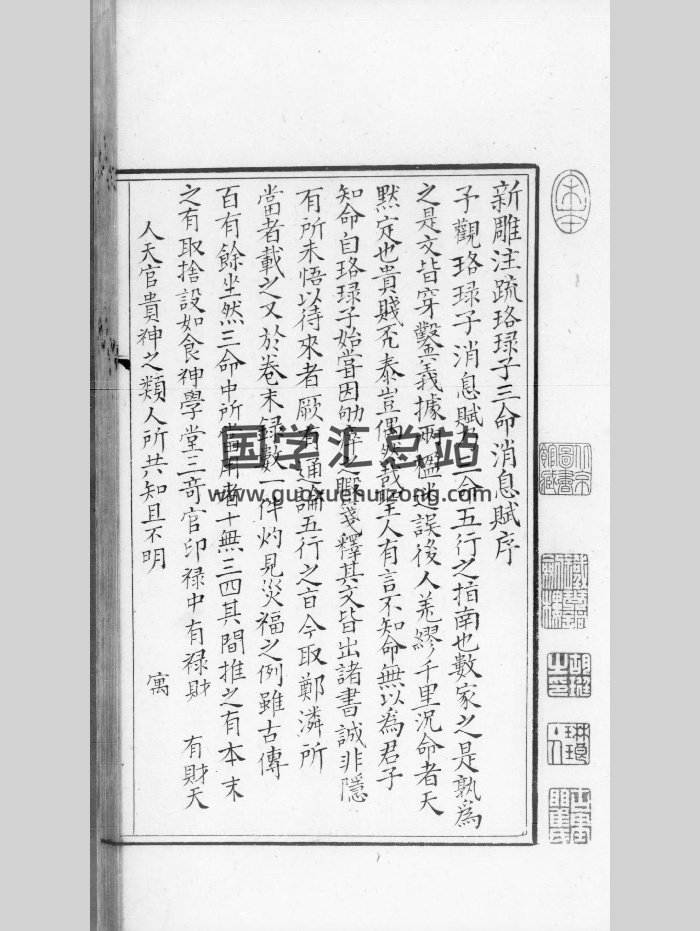 新雕注疏珞琭子三命消息賦序
予觀珞琭子消息賦者三命五行之指南也數家之是孰為
之是文皆穿鑿義據兩楹迷誤後人羌繆千里況命者天
黙定也貴賤否泰豈偶然哉聖人有言不知命無以為君子
知命自珞琭子始嘗因劬瘁之暇箋釋其文皆出諸書誠非隱
有所未悟以待來者厥有通論五行之旨今取鄭潾所
當者載之又於卷末録數一件灼見災福之例雖古傳
百有餘坐然三命中所當用者十無三四其間推之有本末
之有取捨設如食神學堂三奇官印禄中有禄財 有財天
人天官貴神之類人所共知且不明 寓
国学汇总站
www.guoxuehuizong.com